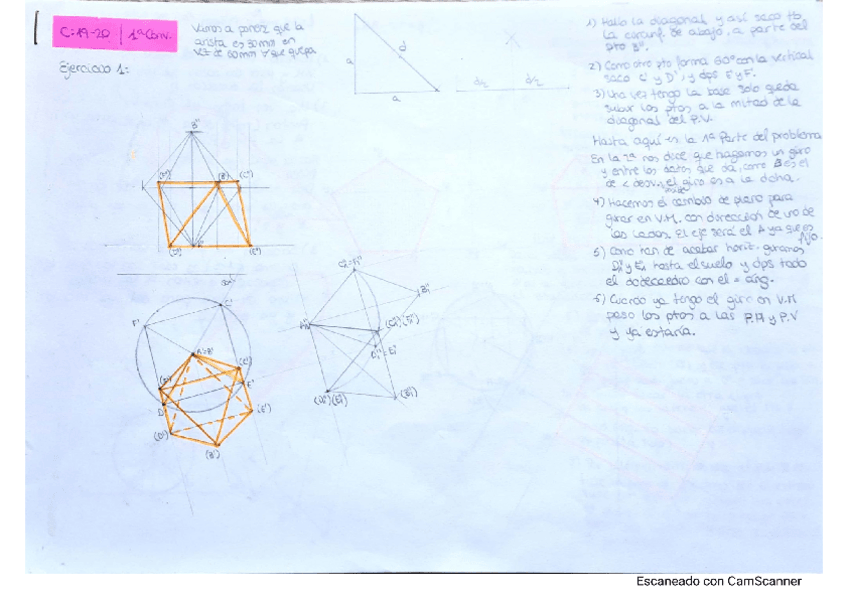 C: 19-20 | 1ª Conv.
Vamos a poner que la
arista es 50mm en
vez de 60mm para que quepa
Ejercicio 1:
a
d
a
d/2
d/2
1) Hallo la diagonal y así saco
la circunf. de abajo, a partir del
pto B".
2) Como otro pto forma 60° con la vertical
saco C' y D', y dps E' y F'.
3) Una vez tengo la base solo queda
subir los ptos a la mitad de la
diagonal del P.V.
Hasta aquí es la 1ª Parte del problema
En la 2ª nos dice que hagamos un giro
y entre los datos que da, como B es el
de < desv., el giro es a la dcha.
4) Hacemos el cambio de plano para
girar en V.M. con dirección de uno de
los lados. El eje será el A ya que es
fijo.
5) Como han de acabar horiz. giramos
hasta el suelo y dps todo
el dodecaedro con el = ang.
6) Cuando ya tengo el giro en V.M
paso los ptos a las P.H y P.V
y ya estaría.
B"
(B")
(C")
(D")
(E")
C'
F'
A'≡B'
(C')
F'
(E')
D'
(D')
(B')
Escaneado con CamScanner